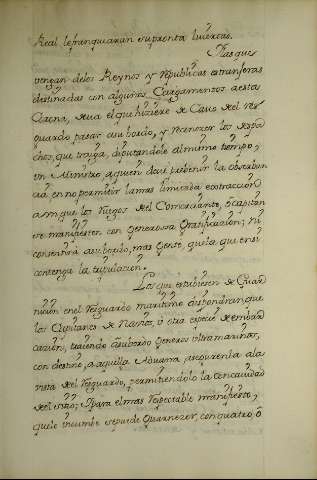 Real le franquearan su pronta livertad.
Las que
vengan delos Reynos y Republicas estranjeras
destinadas con algunos Cargamentos a esta
sera el que hiziere de Cavo del res
guardo pasar a su bordo, y reconocer los despa
chos, que trayga, diputandole al mismo tiempo,
un Ministro aquien deve prebenir la observan
cia en no permitir la mas limitada extraccion
aun que los ruegos del Comerciante, ò capitan
se manifiesten con generosa Gratificacion; ni
consentirá a su bordo, mas Gente, que la que en si
contenga la tripulacion.
Los que estubiesen de Guar
nicion en el Resguardo maritimo dispondran, que
los Capitanes de Navios, ù otra especie de embar
cacion, trayendo à su bordo Generos ultramarinos,
con destino, a aquella Aduana, asegurenla a la
vista del Resguardo, permitiendolo la concavidad
del sitio; Y para el mas respectable manifiesto,
que le incumbe se puede Guarnezer, con quatro, ò